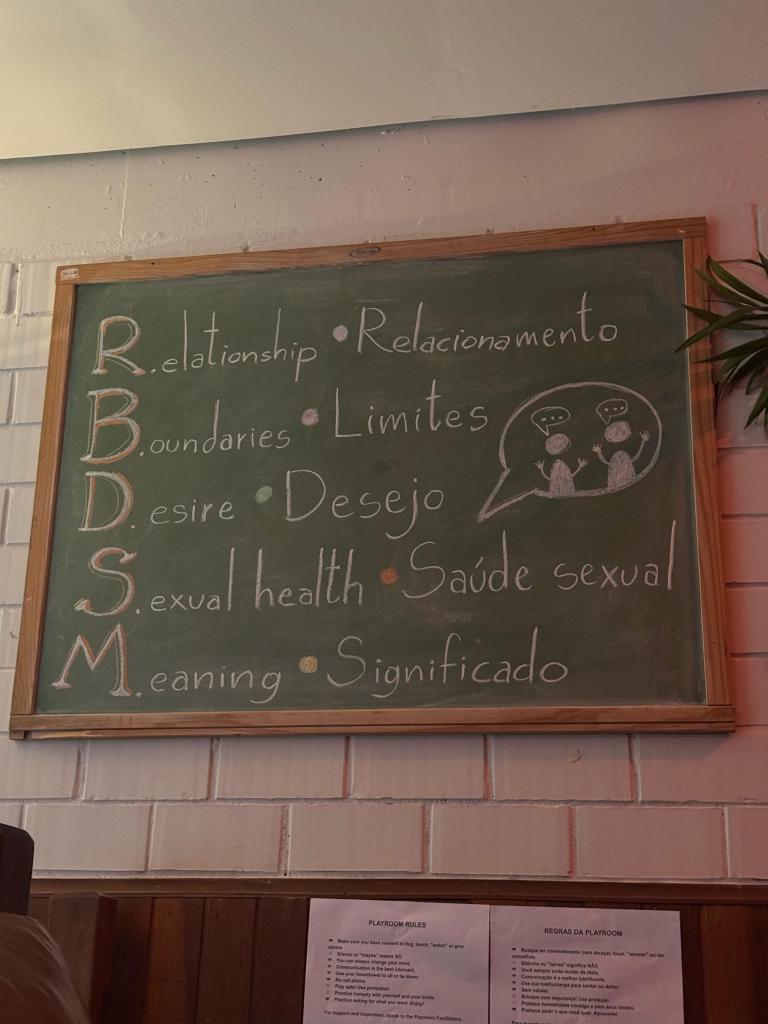 R.elationship • Relacionamento
B.oundaries • Limites
D.esire • Desejo
S.exual health • Saúde sexual
M.eaning • Significado
PLAYROOM RULES
Make sure you have consent to hug, touch, "watch" or give
advice
Silence or "maybe" means NO.
You can always change your mind.
Communication is the best lubricant.
Use your towel/towel to sit or lie down.
No cell phone.
Play safe! Use protection.
Practice honesty with yourself and your limits.
Practice asking for what you want. Enjoy!
For support and inspiration, speak to the Playroom Facilitators.
REGRAS DA PLAYROOM
Busque ter consentimento para abraçar, tocar, "assistir" ou dar
conselhos.
Silêncio ou "talvez" significa NÃO.
Você sempre pode mudar de ideia.
Comunicação é o melhor lubrificante.
Use sua toalha/canga para sentar ou deitar
Sem celular.
Brinque com segurança! Use proteção
Pratique honestidade consigo e com seus limites
Pratique pedir o que você quer. Aproveite!